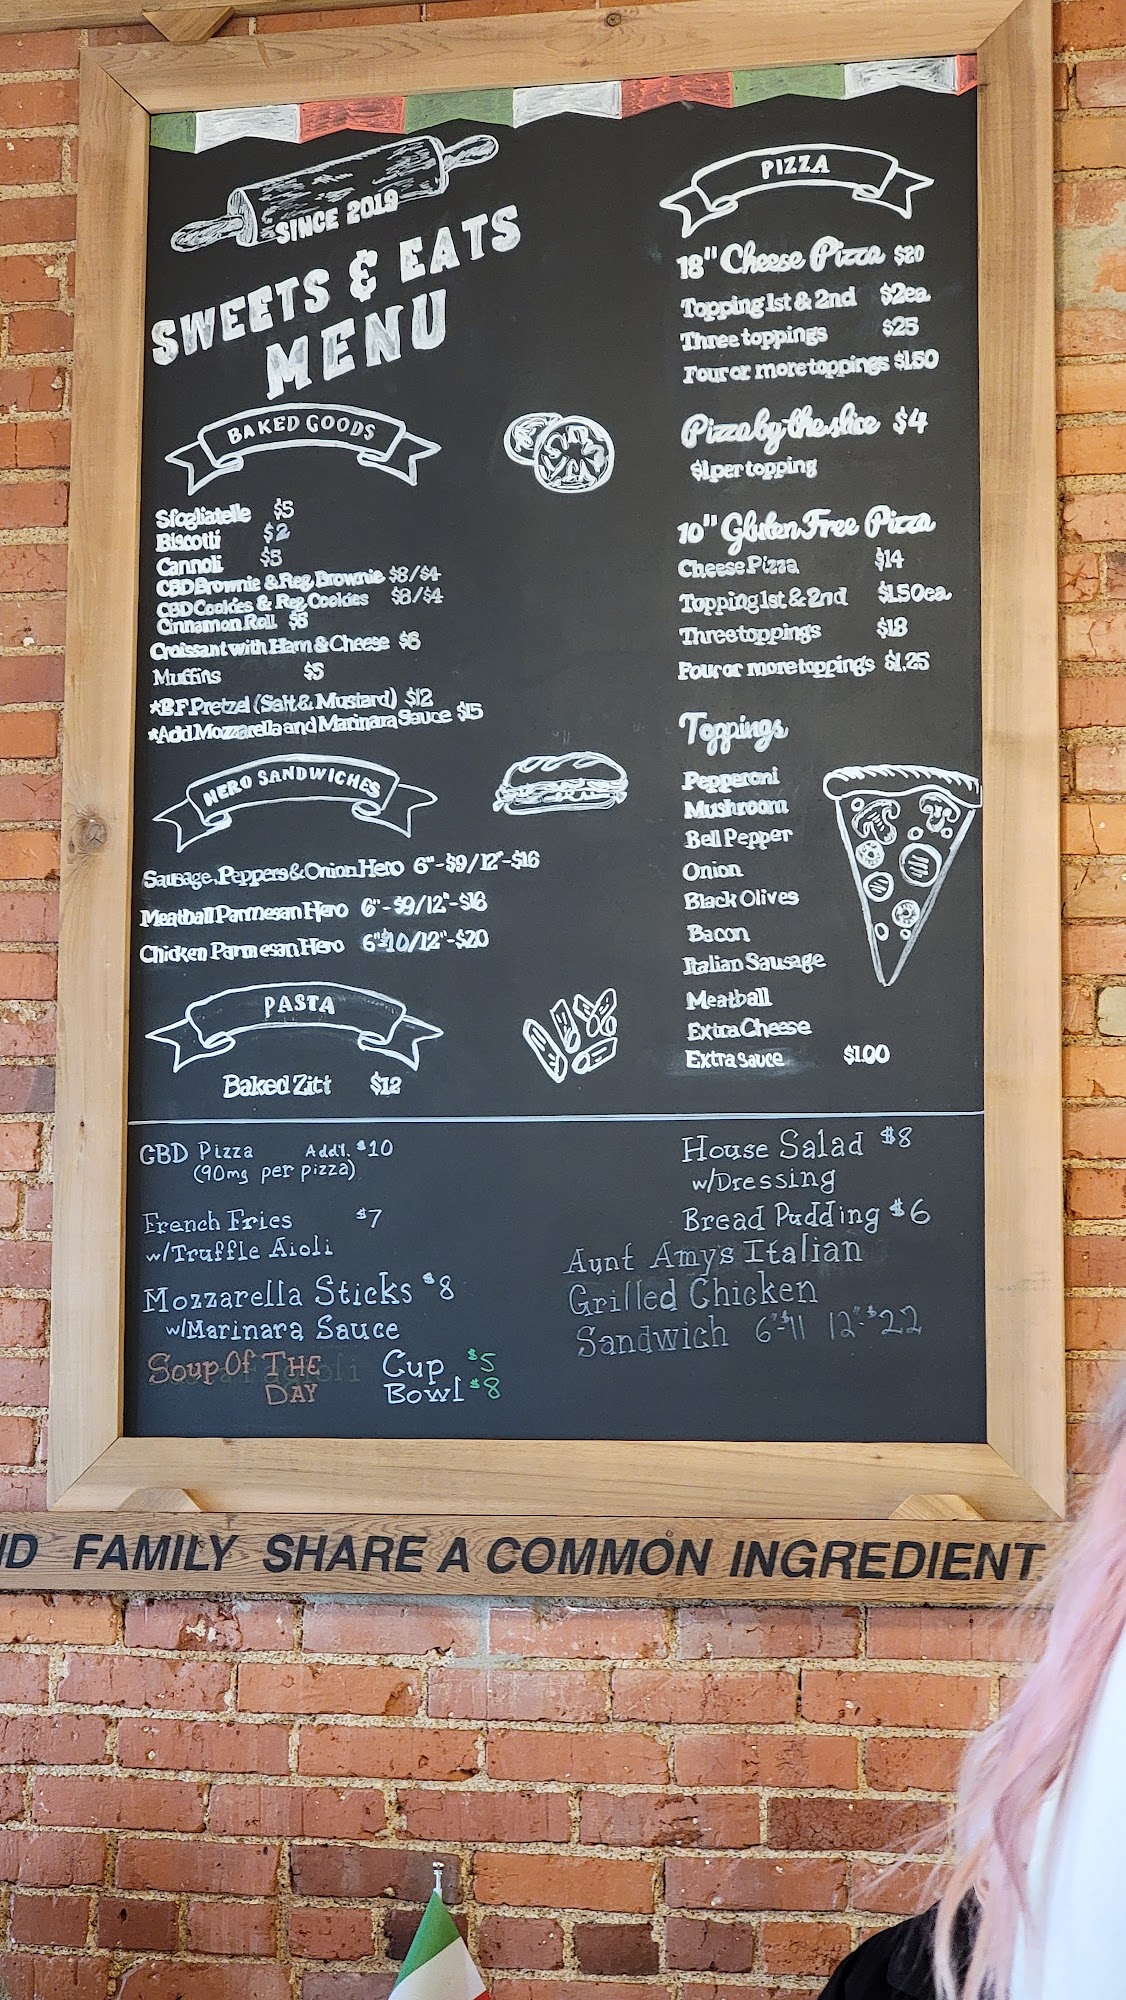 SINCE 2019
SWEETS & EATS
MENU
BAKED GOODS
Sfogliatelle $5
Biscotti $2
Cannoli $5
CBD Brownie & Reg. Brownie $8/$4
CBD Cookies & Reg Cookies $8/$4
Cinnamon Roll $5
Croissant with Ham & Cheese $6
Muffins $5
*BF Pretzel (Salt & Mustard) $12
*Add Mozzarella and Marinara Sauce $15
HERO SANDWICHES
Sausage, Peppers & Onion Hero 6"-$9/12"-$16
Meatball Parmesan Hero 6"-$9/12"-$16
Chicken Parmesan Hero 6"$10/12"-$20
PASTA
Baked Ziti $12
PIZZA
18" Cheese Pizza $20
Topping 1st & 2nd $2ea.
Three toppings $25
Four or more toppings $1.50
Pizza by the slice $4
$1 per topping
10" Gluten Free Pizza
Cheese Pizza $14
Topping 1st & 2nd $1.50ea.
Three toppings $18
Four or more toppings $1.25
Toppings
Pepperoni
Mushroom
Bell Pepper
Onion
Black Olives
Bacon
Italian Sausage
Meatball
Extra Cheese
Extra sauce $1.00
CBD Pizza Add'l. $10
(90mg per pizza)
French Fries $7
w/Truffle Aioli
Mozzarella Sticks $8
w/Marinara Sauce
Soup Of THE
DAY
Cup $5
Bowl $8
House Salad $8
w/Dressing
Bread Pudding $6
Aunt Amys Italian
Grilled Chicken
Sandwich 6"-$11 12"-$22
FAMILY SHARE A COMMON INGREDIENT